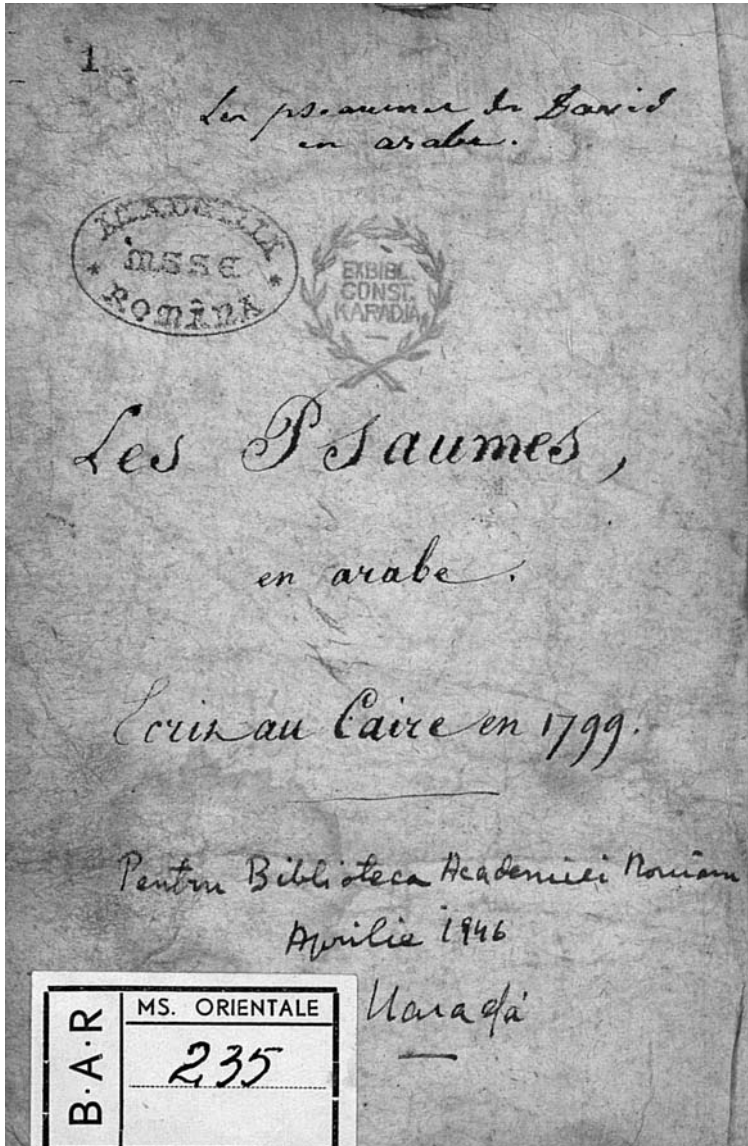 1
Les pseaumes de David
en arabe.
ACADEMIA
MSSE
ROMÎNA
EXBIBL.
CONST.
KARADJA
Les Psaumes,
en arabe.
Ecris au Caire en 1799.
Pentru Biblioteca Academiei Române
Aprilie 1946
Karadja
B·A·R
MS. ORIENTALE
235